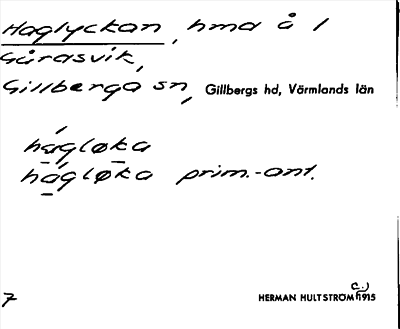 Haglyckan, hma å 1
Gårasvik,
Gillberga sn, Gillbergs hd, Värmlands län
hágløka
hágløka prim.-ant.
7 HERMAN HULTSTRÖM (c.) 1915